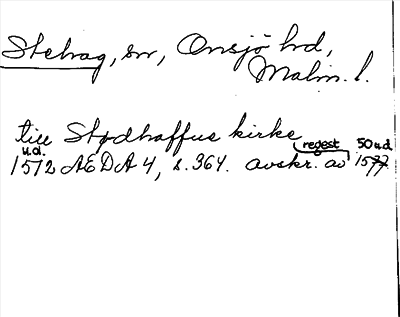 Stehag, sn, Onsjö hd,
Malm. l.
till Stødhaffue kirke
u.d. regest 50 u.d.
1512 AEDA 4, s. 364. avskr. av 1577